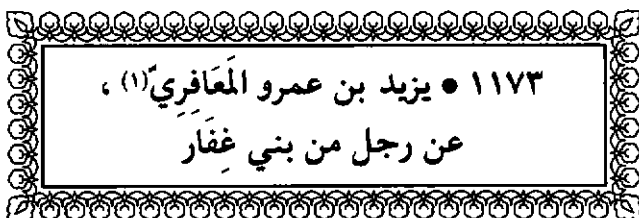 ١١٧٣ • يزيد بن عمرو المَعَافِرِيّ(١) ،
عن رجل من بني غِفَار